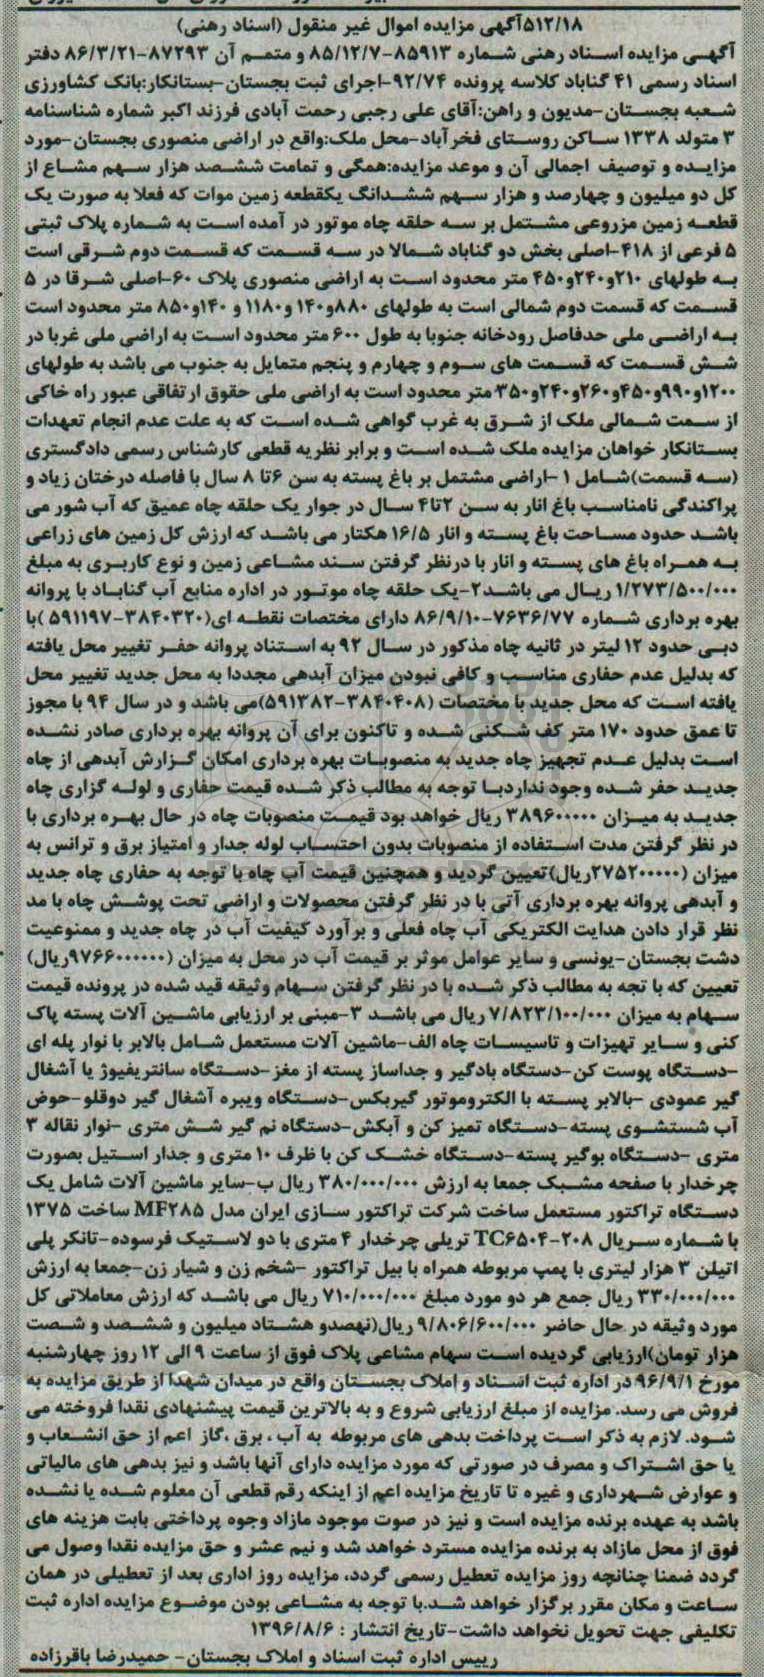 ۵۱۲/۱۸آگهی مزایده اموال غیر منقول (اسناد رهنی)
آگهی مزایده اسناد رهنی شماره ۸۵۹۱۳-۸۵/۱۲/۷ و متمم آن ۸۷۲۹۳-۸۶/۳/۲۱ دفتر
اسناد رسمی ۴۱ گناباد کلاسه پرونده ۹۲/۷۴-اجرای ثبت بجستان-بستانکار:بانک کشاورزی
شعبه بجستان-مدیون و راهن:آقای علی رجبی رحمت آبادی فرزند اکبر شماره شناسنامه
۳ متولد ۱۳۳۸ ساکن روستای فخرآباد-محل ملک:واقع در اراضی منصوری بجستان-مورد
مزایده و توصیف اجمالی آن و موعد مزایده:همگی و تمامت ششصد هزار سهم مشاع از
کل دو میلیون و چهارصد و هزار سهم ششدانگ یکقطعه زمین موات که فعلا به صورت یک
قطعه زمین مزروعی مشتمل بر سه حلقه چاه موتور در آمده است به شماره پلاک ثبتی
۵ فرعی از ۴۱۸-اصلی بخش دو گناباد شمالا در سه قسمت که قسمت دوم شرقی است
به طولهای ۲۱۰و۲۴۰و۴۵۰ متر محدود است به اراضی منصوری پلاک ۶۰-اصلی شرقا در ۵
قسمت که قسمت دوم شمالی است به طولهای ۸۸۰و۱۴۰ و۱۱۸۰ و ۱۴۰و۸۵۰ متر محدود است
به اراضی ملی حدفاصل رودخانه جنوبا به طول ۶۰۰ متر محدود است به اراضی ملی غربا در
شش قسمت که قسمت های سوم و چهارم و پنجم متمایل به جنوب می باشد به طولهای
۱۲۰۰و۹۹۰و۴۵۰و۲۶۰و۲۴۰و۳۵۰ متر محدود است به اراضی ملی حقوق ارتفاقی عبور راه خاکی
از سمت شمالی ملک از شرق به غرب گواهی شده است که به علت عدم انجام تعهدات
بستانکار خواهان مزایده ملک شده است و برابر نظریه قطعی کارشناس رسمی دادگستری
(سه قسمت)شامل ۱ -اراضی مشتمل بر باغ پسته به سن ۶تا ۸ سال با فاصله درختان زیاد و
پراکندگی نامناسب باغ انار به سن ۲تا۴ سال در جوار یک حلقه چاه عمیق که آب شور می
باشد حدود مساحت باغ پسته و انار ۱۶/۵ هکتار می باشد که ارزش کل زمین های زراعی
به همراه باغ های پسته و انار با درنظر گرفتن سند مشاعی زمین و نوع کاربری به مبلغ
۱/۲۷۳/۵۰۰/۰۰۰ ریال می باشد۲-یک حلقه چاه موتور در اداره منابع آب گناباد با پروانه
بهره برداری شماره ۷۶۳۶/۷۷-۸۶/۹/۱۰ دارای مختصات نقطه ای(۳۸۴۰۳۲۰-۵۹۱۱۹۷ )با
دبی حدود ۱۲ لیتر در ثانیه چاه مذکور در سال ۹۲ به استناد پروانه حفر تغییر محل یافته
که بدلیل عدم حفاری مناسب و کافی نبودن میزان آبدهی مجددا به محل جدید تغییر محل
یافته است که محل جدید با مختصات (۳۸۴۰۴۰۸-۵۹۱۳۸۲)می باشد و در سال ۹۴ با مجوز
تا عمق حدود ۱۷۰ متر کف شکنی شده و تاکنون برای آن پروانه بهره برداری صادر نشده
است بدلیل عدم تجهیز چاه جدید به منصوبات بهره برداری امکان گزارش آبدهی از چاه
جدید حفر شده وجود نداردبا توجه به مطالب ذکر شده قیمت حفاری و لوله گزاری چاه
جدید به میزان ۳۸۹۶۰۰۰۰۰ ریال خواهد بود قیمت منصوبات چاه در حال بهره برداری با
در نظر گرفتن مدت استفاده از منصوبات بدون احتساب لوله جدار و امتیاز برق و ترانس به
میزان (۲۷۵۲۰۰۰۰۰ریال)تعیین گردید و همچنین قیمت آب چاه با توجه به حفاری چاه جدید
و آبدهی پروانه بهره برداری آتی با در نظر گرفتن محصولات و اراضی تحت پوشش چاه با مد
نظر قرار دادن هدایت الکتریکی آب چاه فعلی و برآورد کیفیت آب در چاه جدید و ممنوعیت
دشت بجستان-یونسی و سایر عوامل موثر بر قیمت آب در محل به میزان (۹۷۶۶۰۰۰۰۰۰ریال)
تعیین که با تجه به مطالب ذکر شده با در نظر گرفتن سهام وثیقه قید شده در پرونده قیمت
سهام به میزان ۷/۸۲۳/۱۰۰/۰۰۰ ریال می باشد ۳-مبنی بر ارزیابی ماشین آلات پسته پاک
کنی و سایر تهیزات و تاسیسات چاه الف-ماشین آلات مستعمل شامل بالابر با نوار پله ای
-دستگاه پوست کن-دستگاه بادگیر و جداساز پسته از مغز-دستگاه سانتریفیوژ یا آشغال
گیر عمودی -بالابر پسته با الکتروموتور گیربکس-دستگاه ویبره آشغال گیر دوقلو-حوض
آب شستشوی پسته-دستگاه تمیز کن و آبکش-دستگاه نم گیر شش متری -نوار نقاله ۳
متری -دستگاه بوگیر پسته-دستگاه خشک کن با ظرف ۱۰ متری و جدار استیل بصورت
چرخدار با صفحه مشبک جمعا به ارزش ۳۸۰/۰۰۰/۰۰۰ ریال ب-سایر ماشین آلات شامل یک
دستگاه تراکتور مستعمل ساخت شرکت تراکتور سازی ایران مدل MF۲۸۵ ساخت ۱۳۷۵
با شماره سریال TC۶۵۰۴-۲۰۸ تریلی چرخدار ۴ متری با دو لاستیک فرسوده-تانکر پلی
اتیلن ۳ هزار لیتری با پمپ مربوطه همراه با بیل تراکتور -شخم زن و شیار زن-جمعا به ارزش
۳۳۰/۰۰۰/۰۰۰ ریال جمع هر دو مورد مبلغ ۷۱۰/۰۰۰/۰۰۰ ریال می باشد که ارزش معاملاتی کل
مورد وثیقه در حال حاضر ۹/۸۰۶/۶۰۰/۰۰۰ ریال(نهصدو هشتاد میلیون و ششصد و شصت
هزار تومان)ارزیابی گردیده است سهام مشاعی پلاک فوق از ساعت ۹ الی ۱۲ روز چهارشنبه
مورخ ۹۶/۹/۱ در اداره ثبت اسناد و املاک بجستان واقع در میدان شهدا از طریق مزایده به
فروش می رسد. مزایده از مبلغ ارزیابی شروع و به بالاترین قیمت پیشنهادی نقدا فروخته می
شود. لازم به ذکر است پرداخت بدهی های مربوطه به آب ، برق ،گاز اعم از حق انشعاب و
یا حق اشتراک و مصرف در صورتی که مورد مزایده دارای آنها باشد و نیز بدهی های مالیاتی
و عوارض شهرداری و غیره تا تاریخ مزایده اعم از اینکه رقم قطعی آن معلوم شده یا نشده
باشد به عهده برنده مزایده است و نیز در صوت موجود مازاد وجوه پرداختی بابت هزینه های
فوق از محل مازاد به برنده مزایده مسترد خواهد شد و نیم عشر و حق مزایده نقدا وصول می
گردد ضمنا چنانچه روز مزایده تعطیل رسمی گردد، مزایده روز اداری بعد از تعطیلی در همان
ساعت و مکان مقرر برگزار خواهد شد.با توجه به مشاعی بودن موضوع مزایده اداره ثبت
تکلیفی جهت تحویل نخواهد داشت-تاریخ انتشار : ۱۳۹۶/۸/۶
رییس اداره ثبت اسناد و املاک بجستان- حمیدرضا باقرزاده